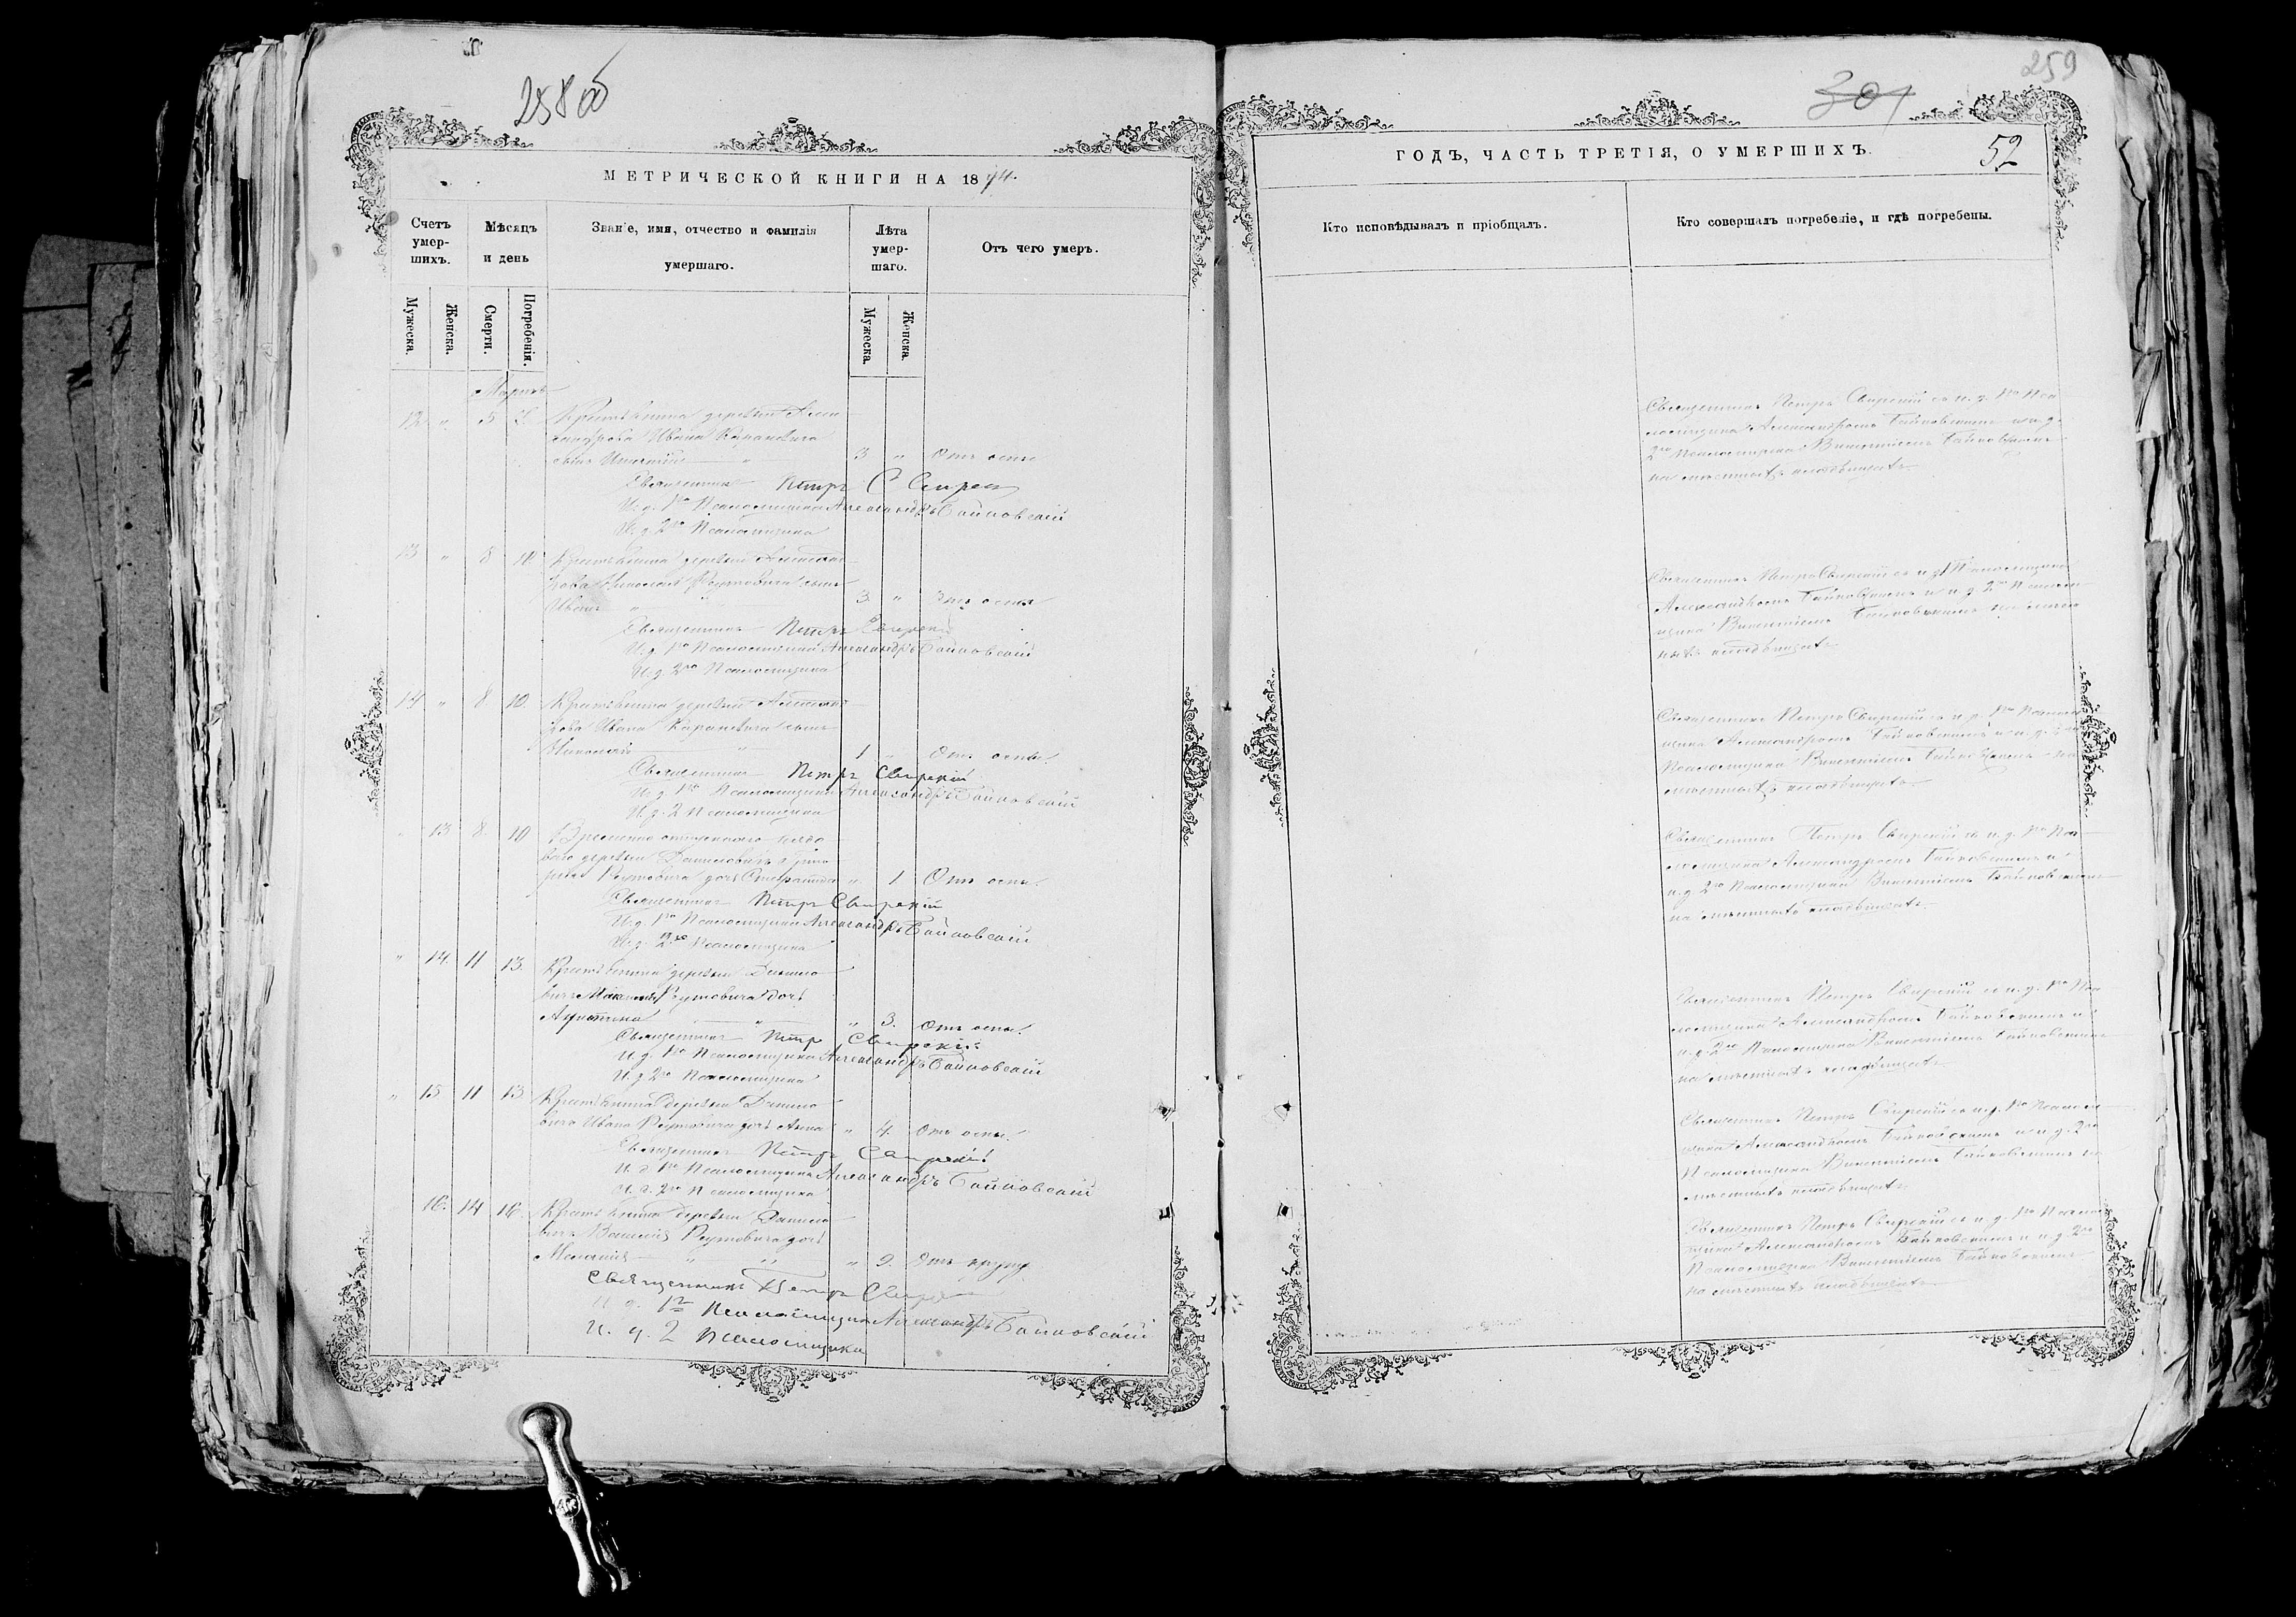 258об
МЕТРИЧЕСКОЙ КНИГИ НА 1874.
Счетъ умер-шихъ.
Мѣсяцъ и день
Званіе, имя, отчество и фамилія умершаго.
Лѣта умер-шаго.
Отъ чего умеръ.
Мужеска.
Женска.
Смерти.
Погребенія.
Мужеска.
Женска.
Мартъ
12 " 5
Крестьянина деревни Алек-
сандрова Ивана
сынъ 3 " Отъ оспы
Священникъ Петръ
И. д. 1го Псаломщика Александръ Байковскій
И. д. 2го Псаломщика
13 " 8 10 Крестьянина деревни
Николая Реутовича сынъ
Иванъ " 3 " Отъ оспы
Священникъ Петръ Свирскій
И. д. 1го Псаломщика Александръ Байковскій
И. д. 2го Псаломщика
14 " 8 10. Крестьянина деревни
Ивана сынъ
Николай " 1 " Отъ оспы.
Священникъ Петръ Свирскій
И. д. 1го Псаломщика Александръ Байковскій
И. д. 2 Псаломщика
" 13 8. 10 Временно отпускного рядо
ваго деревни Даниловичъ Григо
рія Реутовича дочь " 1 Отъ оспы.
Священникъ Петръ Свирскій
И. д. 1го Псаломщика Александръ Байковскій
И. д. 2го Псаломщика
" 14. 11 13. Крестьянина деревни Данило
вичъ Реутовича дочь
" " 3. Отъ оспы.
Священникъ Петръ Свирскій
И. д. 1го Псаломщика Александръ Байковскій
И. д. 2го Псаломщика
" 15 11 13 Крестьянина деревни Данило
вичъ Ивана Реутовича дочь Анна " 4. Отъ оспы.
Священникъ Петръ Свирскій
И. д. 1го Псаломщика Александръ Байковскій
И. д. 2го Псаломщика
16. 14 16. Крестьянина деревни Данило
вичъ Василія Реутовича дочь
Меланія " " " 9. Отъ крупу
Священникъ Петръ Свирскій
И. д. 1го Псаломщика Александръ Байковскій
И. д. 2 Псаломщика
259
301
ГОДЪ, ЧАСТЬ ТРЕТІЯ, О УМЕРШИХЪ.
52
Кто исповѣдывалъ и пріобщалъ.
Кто совершалъ погребеніе, и гдѣ погребены.
Священникъ Петръ Свирскій съ и. д. 1го Пса
ломщика Александромъ Байковскимъ и и. д.
2го Псаломщика Викентіемъ Байковскимъ
на мѣстномъ кладбищѣ.
Священникъ Петръ Свирскій съ и. д. 1 Псаломщика
Александромъ Байковскимъ и и. д. 2го Псалом
щика Викентіемъ Байковскимъ на мѣст
номъ кладбищѣ.
Священникъ Петръ Свирскій съ и. д. 1го Псалом
щика Александромъ Байковскимъ и и. д. 2го
Псаломщика Викентіемъ Байковскимъ на
мѣстномъ кладбищѣ.
Священникъ Петръ Свирскій съ и. д. 1го Пса
ломщика Александромъ Байковскимъ и
и. д. 2го Псаломщика Викентіемъ Байковскимъ
на мѣстномъ кладбищѣ.
Священникъ Петръ Свирскій съ и. д. 1го Пса
ломщика Александромъ Байковскимъ и
и. д. 2го Псаломщика Викентіемъ Байковскимъ
на мѣстномъ кладбищѣ.
Священникъ Петръ Свирскій съ и. д. 1го Псалом
щика Александромъ Байковскимъ и и. д. 2го
Псаломщика Викентіемъ Байковскимъ на
мѣстномъ кладбищѣ.
Священникъ Петръ Свирскій съ и. д. 1го Псалом
щика Александромъ Байковскимъ и и. д. 2го
Псаломщика Викентіемъ Байковскимъ
на мѣстномъ кладбищѣ.